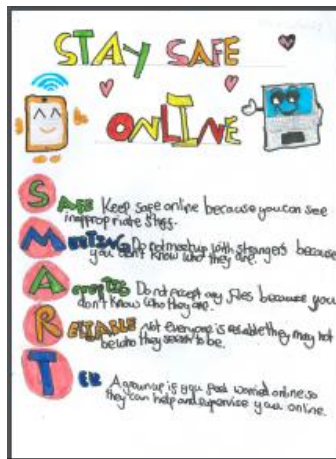 STAY SAFE
ONLINE
SAFE Keep safe online because you can see
inappropriate stuff.
MEETING Do not meet up with strangers because
you don't know who they are.
ACCEPTING Do not accept any files because you
don't know who they are.
RELIABLE Not everyone is reliable they may not
be who they seem to be.
TELL A grown up if you feel worried online so
they can help and supervise you online.